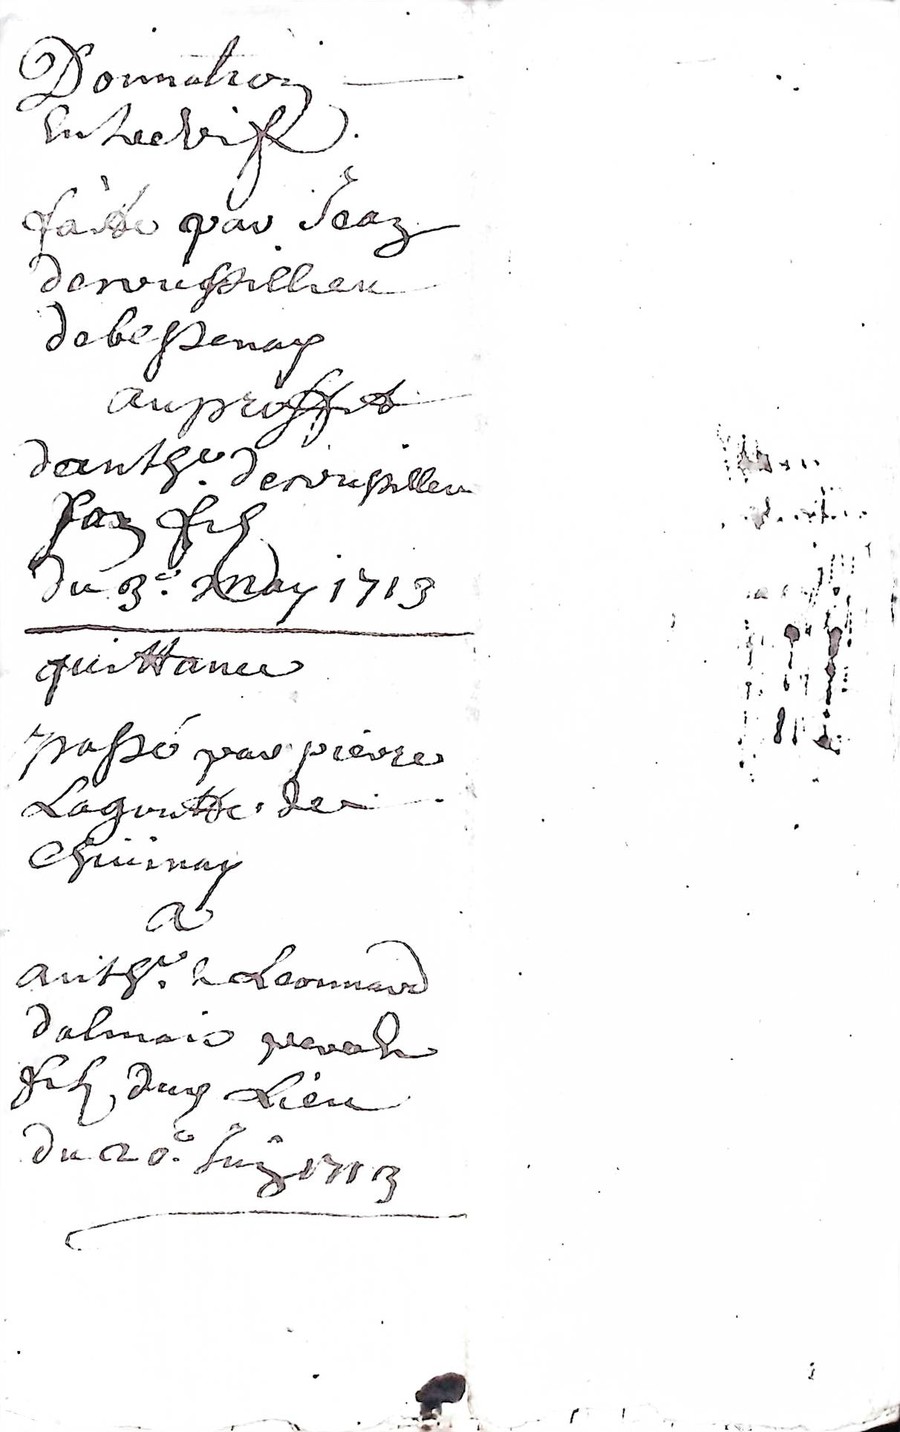 Donnation
Entre vifs
faitte par Jean
deroussillieu
de bessenay
au proffit
d'anthe. derousillieu
son fils
du 3e. May 1713
quittance
passé par pierre
Lagoutte de
Chivinay
a
anthe. & Leonnard
dalmais pere &
fils dud Lieu
du 20e. Juin 1713